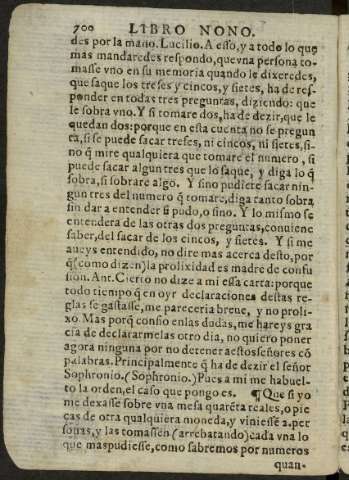 700 LIBRO NONO.
des por la mano. Lucilio. A esso, y a todo lo que
mas mandaredes respondo, que vna persona to-
masse vno en su memoria quando le dixeredes,
que saque los treses y cincos, y sietes, ha de res-
ponder en todas tres preguntas, diziendo: que
le sobra vno. Y si tomare dos, ha de dezir, que le
quedan dos: porque en esta cuenta no se pregun
ta, si se puede sacar treses, ni cincos, ni sietes, si-
no q̃ mire qualquiera que tomare el numero, si
puede sacar algun tres que lo saque, y diga lo q̃
sobra, si sobrare algo. Y sino pudiere sacar nin-
gun tres del numero q̃ tomare, diga tanto sobra
sin dar a entender si pudo, o sino. Y lo mismo se
entendera de las otras dos preguntas, conuiene
saber, del sacar de los cincos, y sietes. Y si me
aueys entendido, no dire mas acerca desto, por
q̃ (como dizen) la prolixidad es madre de confu
sion. Ant. Cierto no dize a mi essa carta: porque
todo tiempo q̃ en oyr declaraciones destas re-
glas se gastasse, me pareceria breue, y no proli-
xo. Mas porq̃ confio en las dudas, me hareys gra
cia de declararmelas otro dia, no quiero poner
agora ninguna por no detener aestos señores cõ
palabras. Principalmente q̃ ha de dezir el señor
Sophronio. (Sophronio.) Pues a mi me habuel-
to la orden, el caso que pongo es. ¶ Que si yo
me dexasse sobre vna mesa quarẽta reales, o pie
ças de otra qualquiera moneda, y viniesse a. per
sonas, y las tomassen (arrebatando) cada vna lo
que mas pudiesse, como sabremos por numeros
quan-